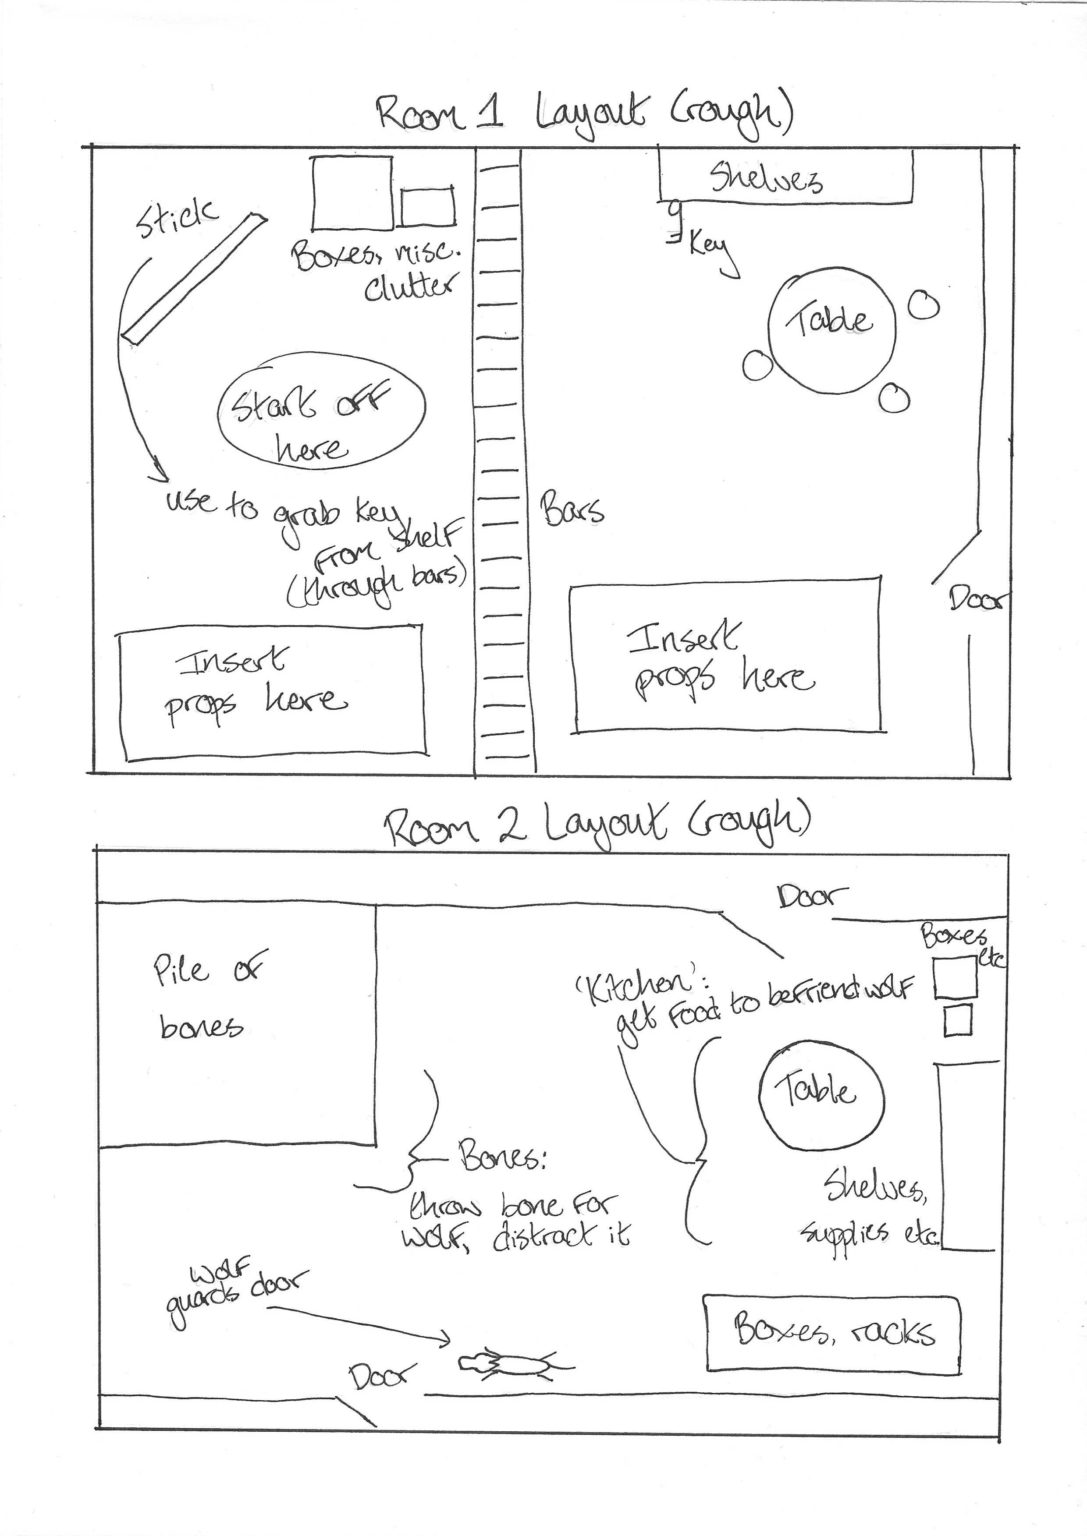 Room 1 Layout (rough)
Stick
Boxes, misc.
clutter
Shelves
Key
Table
Start off
here
use to grab key
from shelf
(through bars)
Bars
Door
Insert
props here
Insert
props here
Room 2 Layout (rough)
Door
Boxes
etc
Pile of
bones
'Kitchen':
get food to befriend wolf
Table
Bones:
throw bone for
wolf, distract it
Shelves,
supplies etc.
wolf
guards door
Boxes, racks
Door